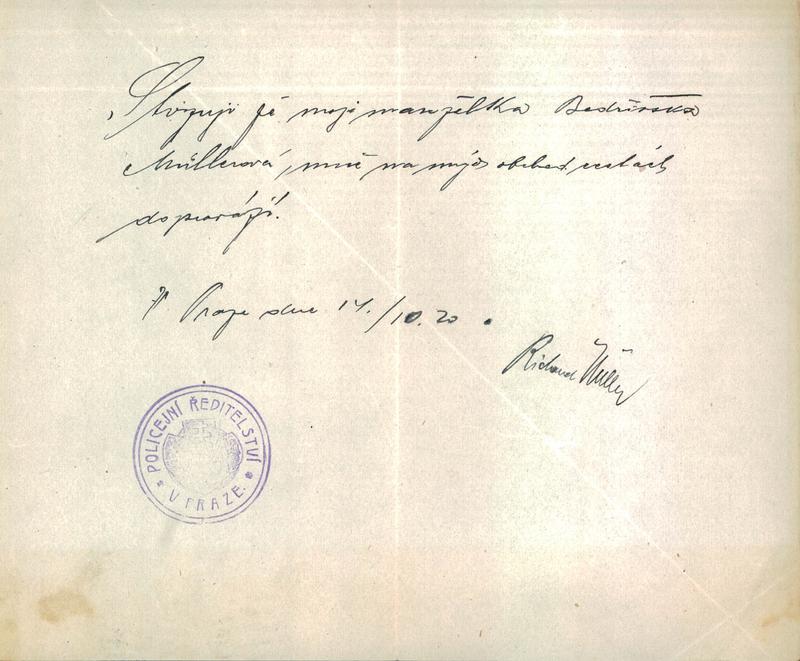 Stvrzuji že moje manželka Bedřiška
Müllerová, mně na mých obchod. cestách
doprovází.
V Praze dne 14./10. 20.
Richard Müller
POLICEJNÍ ŘEDITELSTVÍ
* V PRAZE. *